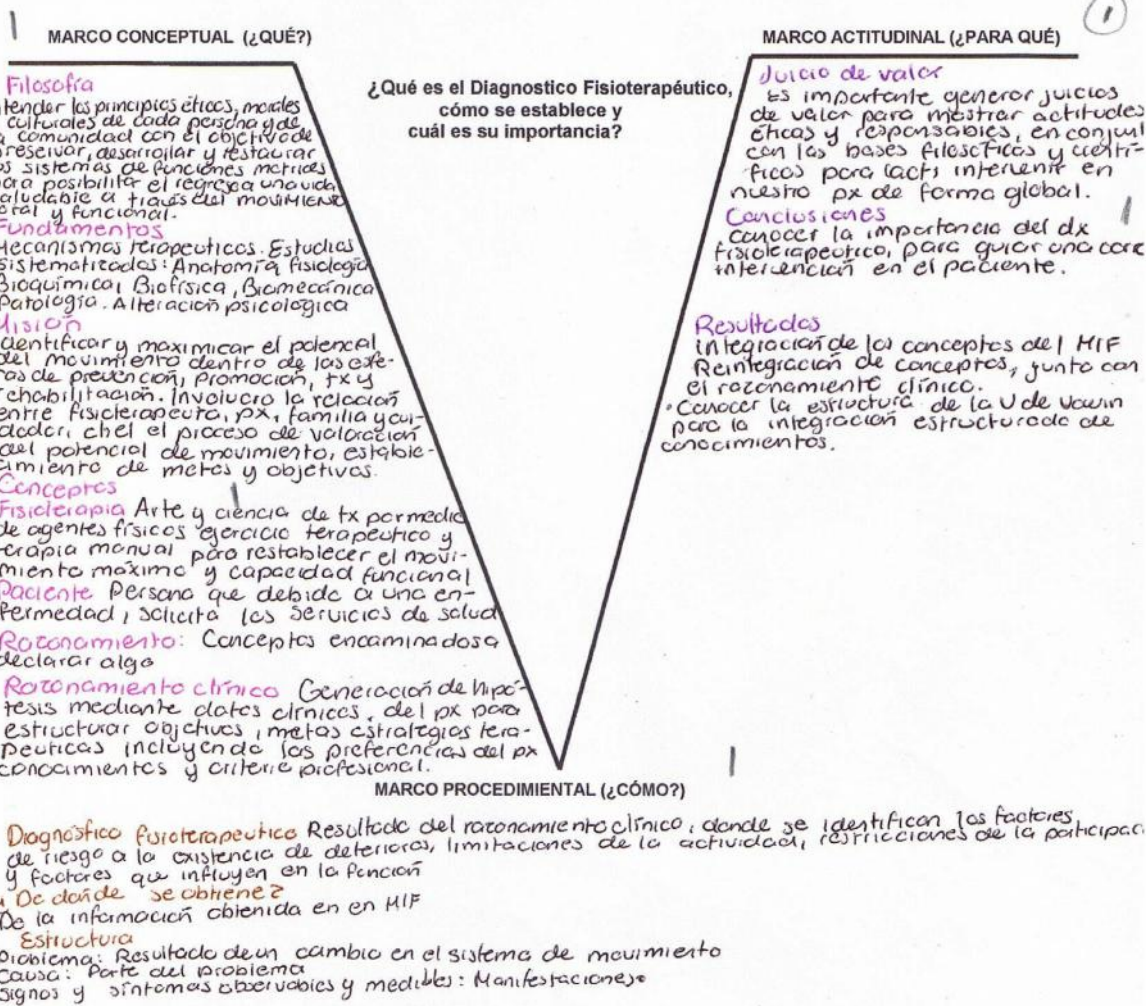 1
MARCO CONCEPTUAL (¿QUÉ?)
Filosofía
tender los principios éticos, morales
culturales de cada persona y de
a comunidad con el objetivo de
reservar, desarrollar y restaurar
os sistemas de funciones motrices
ara posibilita el regreso a una vida
aludable a través del movimiento
otal y funcional.
Fundamentos
Mecanismos terapeuticos. Estudios
sistematizados: Anatomía, fisiología
Bioquímica, Biofísica, Biomecánica
Patología. Alteración psicologica
Misión
dentificar y maximicar el potencal
del movimiento dentro de las esfe-
ras de prevención, promoción, tx y
rehabilitación. Involucra la relación
entre fisioterapeuta, px, familia y cui-
dador, en el proceso de valoración
del potencial de movimiento, estable-
cimiento de metas y objetivos.
Conceptos
Fisioterapia Arte y ciencia de tx por medio
de agentes físicos ejercicio terapeutico y
terapia manual para restablecer el movi-
miento máximo y capacidad funcional
Paciente Persona que debido a una en-
fermedad, solicita los servicios de salud
Razonamiento: Conceptos encaminados a
declarar algo
Razonamiento clínico Generación de hipó-
tesis mediante datos clínicos, del px para
estructurar objetivos, metas estrategias tera-
peuticas incluyendo las preferencias del px
conocimientos y criterio profesional.
¿Qué es el Diagnostico Fisioterapéutico,
cómo se establece y
cuál es su importancia?
1
MARCO ACTITUDINAL (¿PARA QUÉ)
Juicio de valor
Es importante generar juicios
de valor para mostrar actitudes
éticas y responsables, en conjun
con las bases filosóficas y cientí-
ficas para intervenir en
nuestro px de forma global.
Conclusiones
conocer la importancia del dx
fisioterapeutico, para guiar una corre
intervención en el paciente.
Resultados
integración de los conceptos del MIF
Reintegración de conceptos, junto con
el razonamiento clínico.
• Conocer la estructura de la V de
para la integración estructurada de
conocimientos.
MARCO PROCEDIMIENTAL (¿CÓMO?)
Diagnóstico fisioterapeutico Resultado del razonamiento clínico, donde se identifican los factores
de riesgo a la existencia de deterioros, limitaciones de la actividad, restricciones de la participac
y factores que influyen en la función
¿De donde se obtiene?
De la información obtenida en en MIF
Estructura
Problema: Resultado de un cambio en el sistema de movimiento
Causa: Parte del problema
signos y síntomas observables y medibles: Manifestaciones